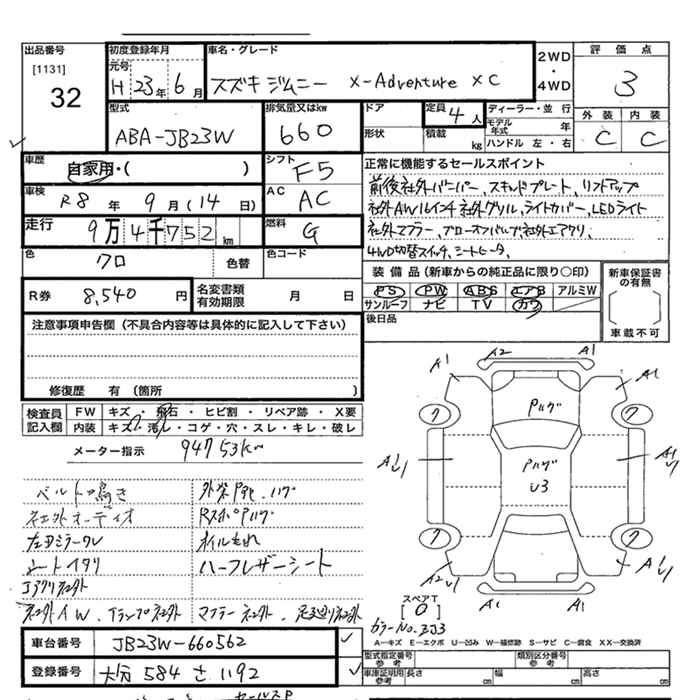 出品番号
[1131]
32
初度登録年月
元号
H 23年 6月
車名・グレード
スズキ ジムニー X-Adventure XC
2WD
・
4WD
評価点
3
外装 内装
C C
型式
ABA-JB23W
排気量又はkw
660
ドア
形状
定員
4人
積載
kg
ディーラー・並 行
モデル年式 年
ハンドル 左・右
車歴
自家用・( )
シフト
F5
車検
R8年 9月(14日)
AC
AC
走行
9万4千752km
燃料
G
色
クロ
色替
色コード
R券 8,540円
名変書類
有効期限 月 日
正常に機能するセールスポイント
前後社外バンパー、スキッドプレート、リフトアップ
社外AW16インチ 社外グリル、ライトカバー、LEDライト
社外マフラー、ブローオフバルブ、社外エアクリ、
4WD切替スイッチ、シートヒータ、
装備品(新車からの純正品に限り〇印)
PS PW ABS エアB アルミW
サンルーフ ナビ TV カワ
後日品
新車保証書の有無
[ ]
車載不可
注意事項申告欄(不具合内容等は具体的に記入して下さい)
修復歴 有(箇所 )
検査員記入欄
FW キズ・飛石・ヒビ割・リペア跡・X要
内装 キズ・汚レ・コゲ・穴・スレ・キレ・破レ
メーター指示 94753km
ベルト鳴き
社外オーディオ
左ドミラーワレ
外装
ハーフレザーシート
オイルもれ
社外AW、
マフラー社外、足廻り社外
A1 A2 A1
A1 A1
Pハゲ
Pハゲ
U3
ク ク
ク ク
A1 A1
スペアT
[0]
カラーNo. ZJ3
A−キズ E−エクボ U−凹み W−補修跡 S−サビ C−腐食 XX−交換済
車台番号 JB23W-660562
登録番号 大分 584 さ 1192
型式指定番号
参考
類別区分番号
参考
車庫証明用
参考
長さ cm 幅 cm 高さ cm